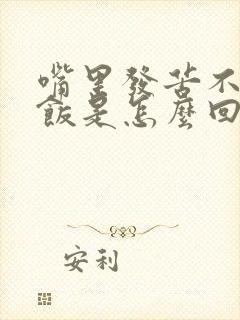 嘴里發苦不
飯是怎麼回
安利